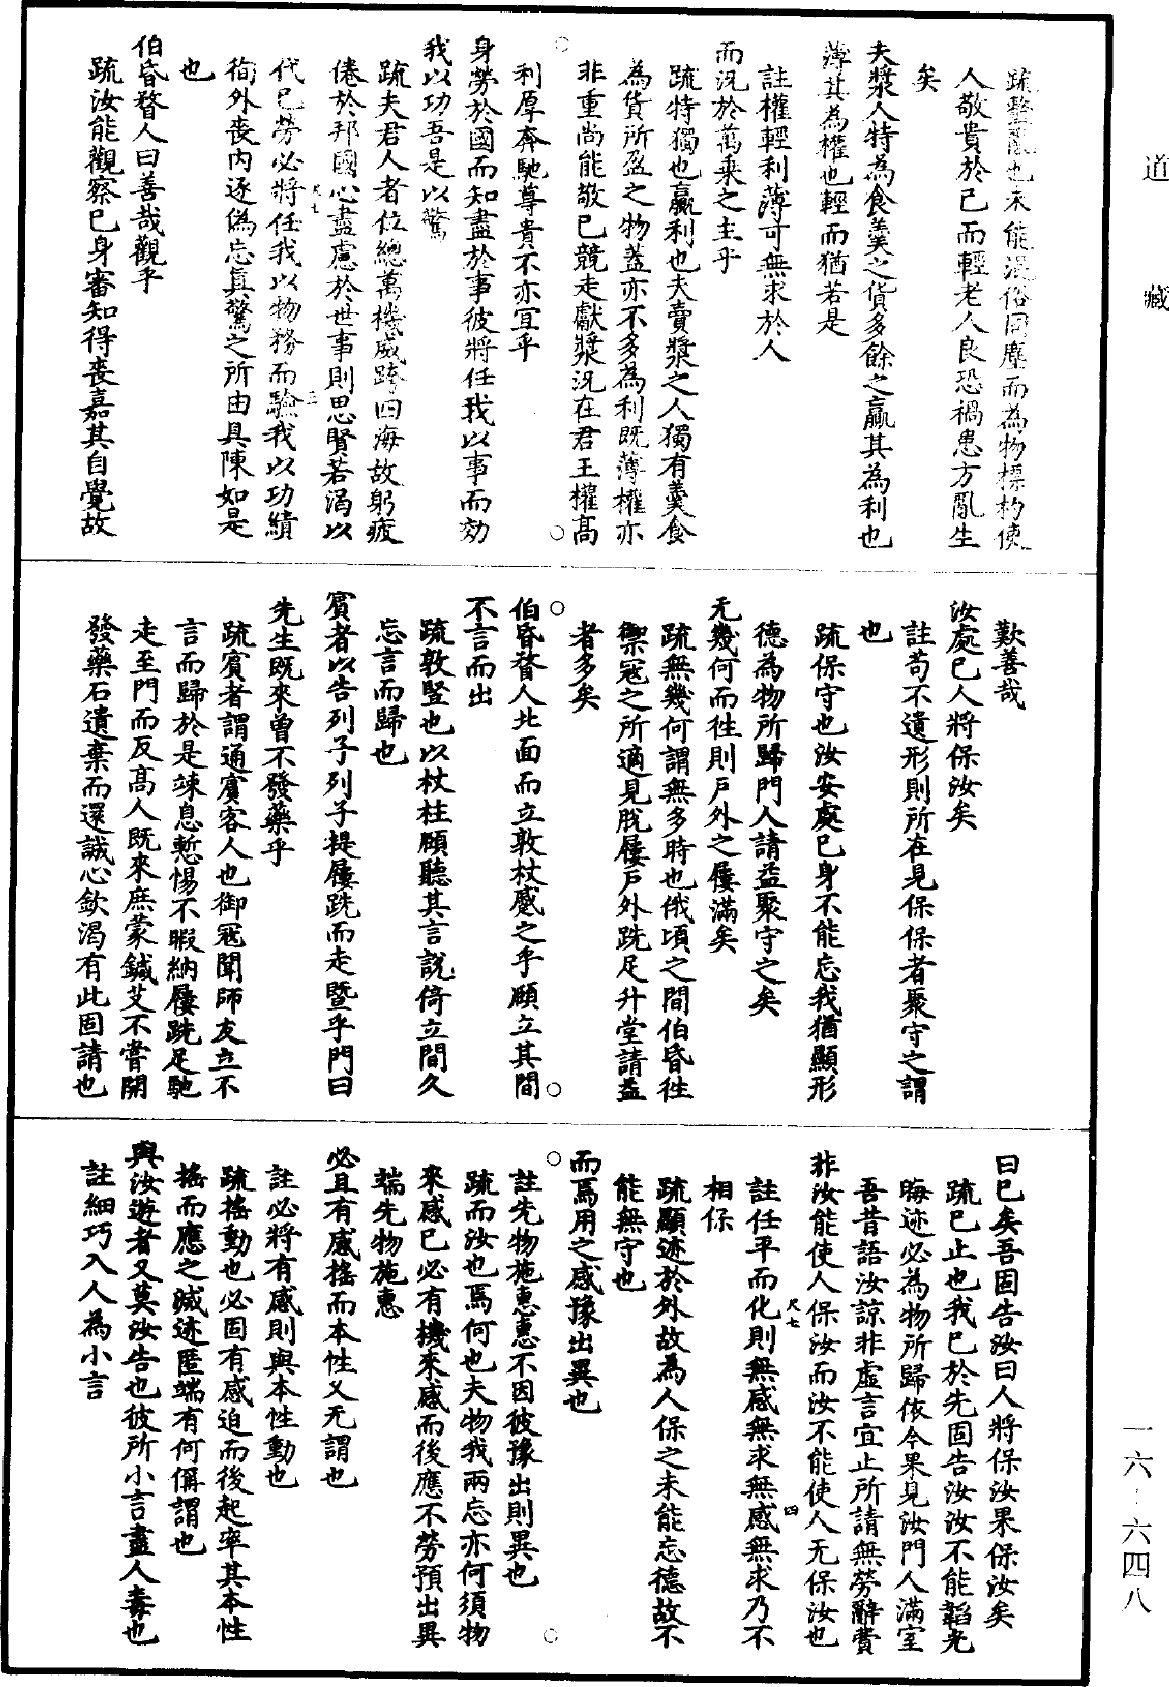 道藏
疏䪠亂也未能混俗同塵而為物標杓使
人敬貴於己而輕老人良恐禍患方亂生
矣
夫漿人特為食羹之貨多餘之贏其為利也
薄其為權也輕而猶若是
註權輕利薄可無求於人
而況於萬乘之主乎
疏特獨也贏利也夫賣漿之人獨有羹食
為貨所盈之物蓋亦不多為利既薄權亦
非重尚能敬己競走獻漿況在君王權高
利厚奔馳尊貴不亦宜乎
身勞於國而知盡於事彼將任我以事而効
我以功吾是以驚
疏夫君人者位總萬機威跨四海故躬疲
倦於邦國心盡慮於世事則思賢若渴以
代己勞必將任我以物務而驗我以功績
徇外喪內逐偽忘真驚之所由具陳如是
也
伯昏瞀人曰善哉觀乎
疏汝能觀察己身審知得喪嘉其自覺故
尺七
三
歎善哉
汝處已人將保汝矣
註苟不遺形則所在見保保者聚守之謂
也
疏保守也汝安處己身不能忘我猶顯形
德為物所歸門人請益聚守之矣
无幾何而往則戶外之屨滿矣
疏無幾何謂無多時也俄頃之間伯昏往
禦寇之所適見脫屨戶外跣足升堂請益
者多矣
伯昏瞀人北面而立敦杖蹙之乎頤立其間
不言而出
疏敦豎也以杖柱頤聽其言說倚立間久
忘言而歸也
賓者以告列子列子提屨跣而走暨乎門曰
先生既來曾不發藥乎
疏賓者謂通賓客人也御寇聞師友立不
言而歸於是竦息慙惕不暇納屨跣足馳
走至門而反高人既來庶蒙鍼艾不嘗開
發藥石遺棄而還誠心欽渴有此固請也
曰已矣吾固告汝曰人將保汝果保汝矣
疏已止也我已於先固告汝汝不能韜光
晦迹必為物所歸依今果見汝門人滿室
吾昔語汝諒非虛言宜止所請無勞辭費
非汝能使人保汝而汝不能使人无保汝也
註任平而化則無感無求無感無求乃不
相保
疏顯迹於外故為人保之未能忘德故不
能無守也
而焉用之感豫出異也
註先物施惠惠不因彼豫出則異也
疏而汝也焉何也夫物我兩忘亦何須物
來感己必有機來感而後應不勞預出異
端先物施惠
必且有感搖而本性又无謂也
註必將有感則與本性動也
疏搖動也必固有感迫而後起率其本性
搖而應之滅迹匿端有何偁謂也
與汝遊者又莫汝告也彼所小言盡人毒也
註細巧入人為小言
尺七
四
一六-六四八